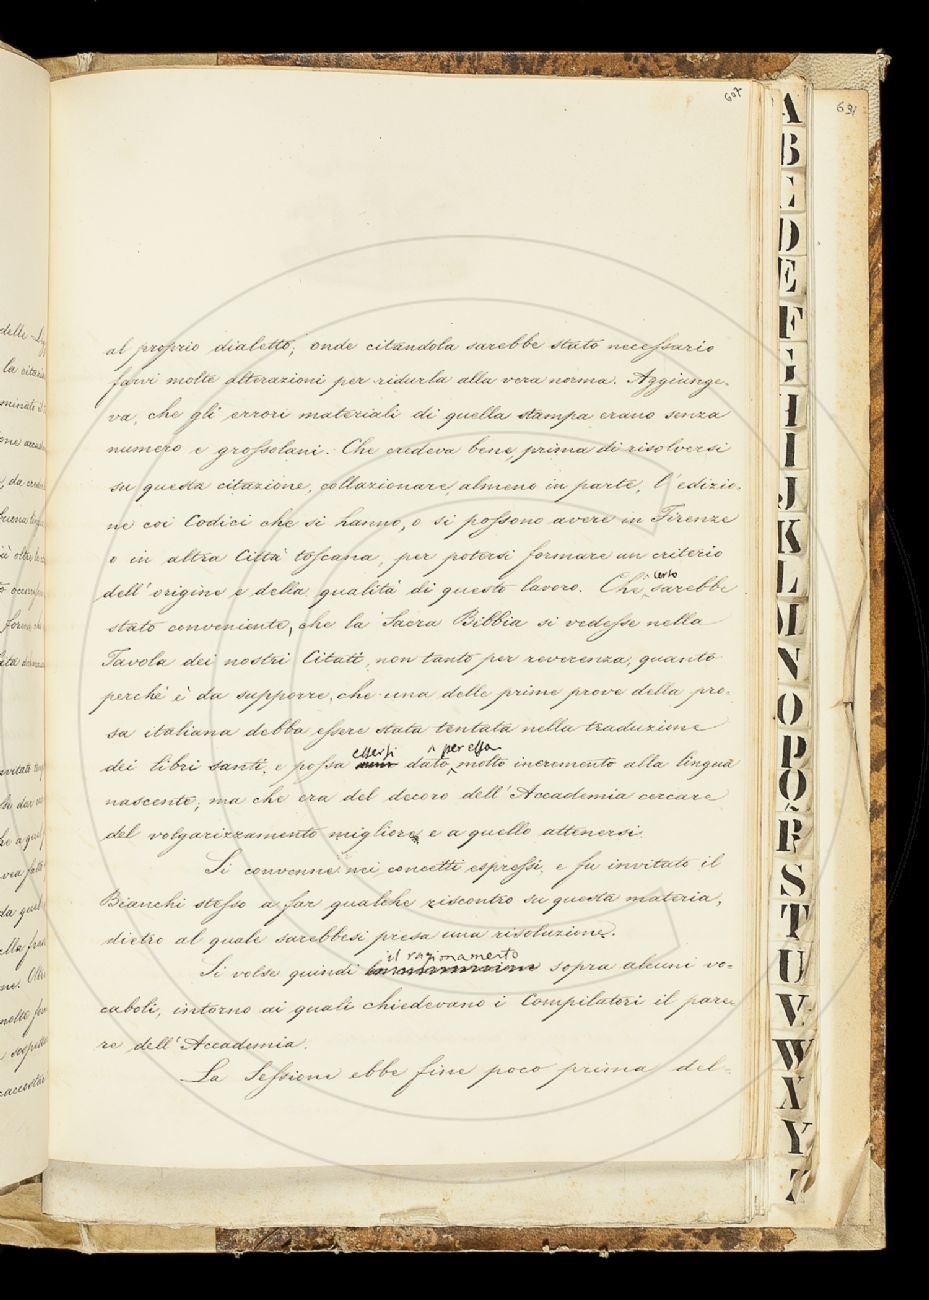 607
631
al proprio dialetto; onde citandola sarebbe stato necessario
farvi molte alterazioni per ridurla alla vera norma. Aggiunge-
va, che gli errori materiali di quella stampa erano senza
numero e grossolani. Che credeva bene, prima di risolversi
su questa citazione, collazionare, almeno in parte, l'edizio-
ne coi Codici che si hanno, o si possono avere in Firenze
o in altra Città toscana, per potersi formare un criterio
dell'origine e della qualità di questo lavoro. Che certo sarebbe
stato conveniente, che la Sacra Bibbia si vedesse nella
Tavola dei nostri Citati, non tanto per reverenza, quanto
perchè è da supporre, che una delle prime prove della pro-
sa italiana debba essere stata tentata nella traduzione
dei libri santi, e possa essersi dato per essa molto incremento alla lingua
nascente; ma che era del decoro dell'Accademia cercare
del volgarizzamento migliore, e a quello attenersi.
Si convenne nei concetti espressi, e fu invitato il
Bianchi stesso a far qualche riscontro su questa materia,
dietro al quale sarebbesi presa una risoluzione.
Si volse quindi il ragionamento sopra alcuni vo-
caboli, intorno ai quali chiedevano i Compilatori il pare-
re dell'Accademia.
La Sessione ebbe fine poco prima del-
A
B
C
D
E
F
G
H
I
J
K
L
M
N
O
P
Q
R
S
T
U
V
W
X
Y
Z